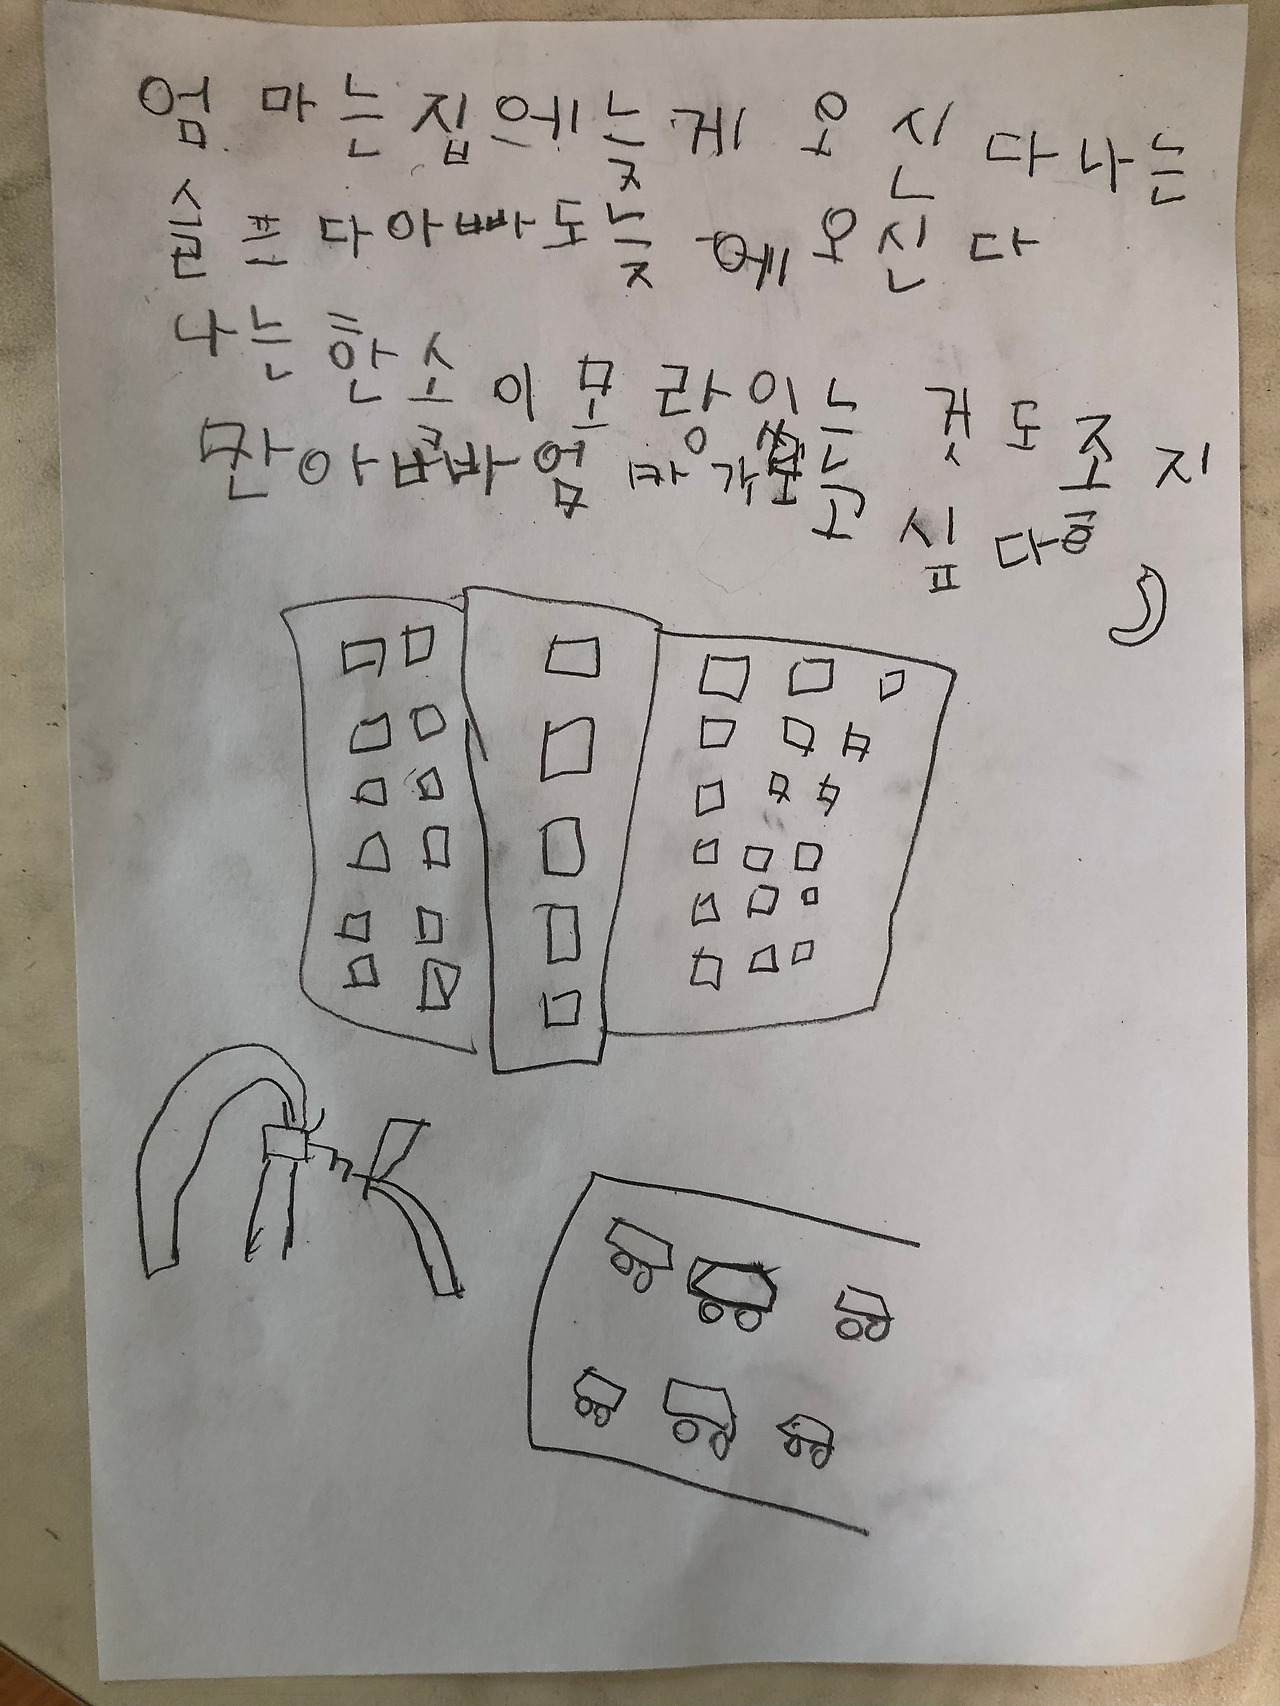 엄마는집에늦게 오신다나는
슬프다아빠도늦에오신다
나는한소이모랑있는 것도조지
만아빠바엄마가보고싶다흥